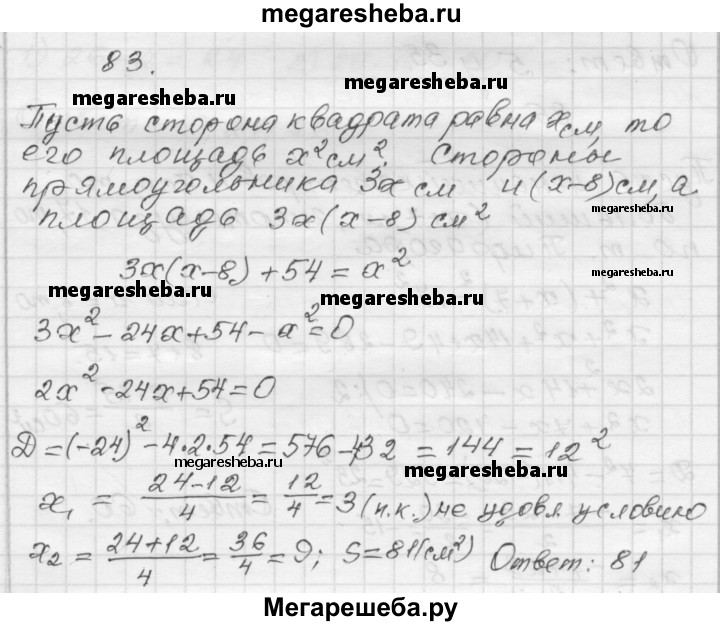 megaresheba.ru
83.
megaresheba.ru
megaresheba.ru
Пусть сторона квадрата равна x см, то
его площадь x² см². Стороны
прямоугольника 3x см и (x-8) см, а
площадь 3x(x-8) см²
3x(x-8)+54=x²
megaresheba.ru
megaresheba.ru
megaresheba.ru
3x²-24x+54-x²=0
2x²-24x+54=0
D=(-24)²-4·2·54=576-432=144=12²
megaresheba.ru
megaresheba.ru
x₁ = (24-12)/4 = 12/4 = 3 (п.к.) не удовл условию
x₂ = (24+12)/4 = 36/4 = 9; S=81(см²) Ответ: 81
megaresheba.ru
megaresheba.ru
Мегарешеба.ру